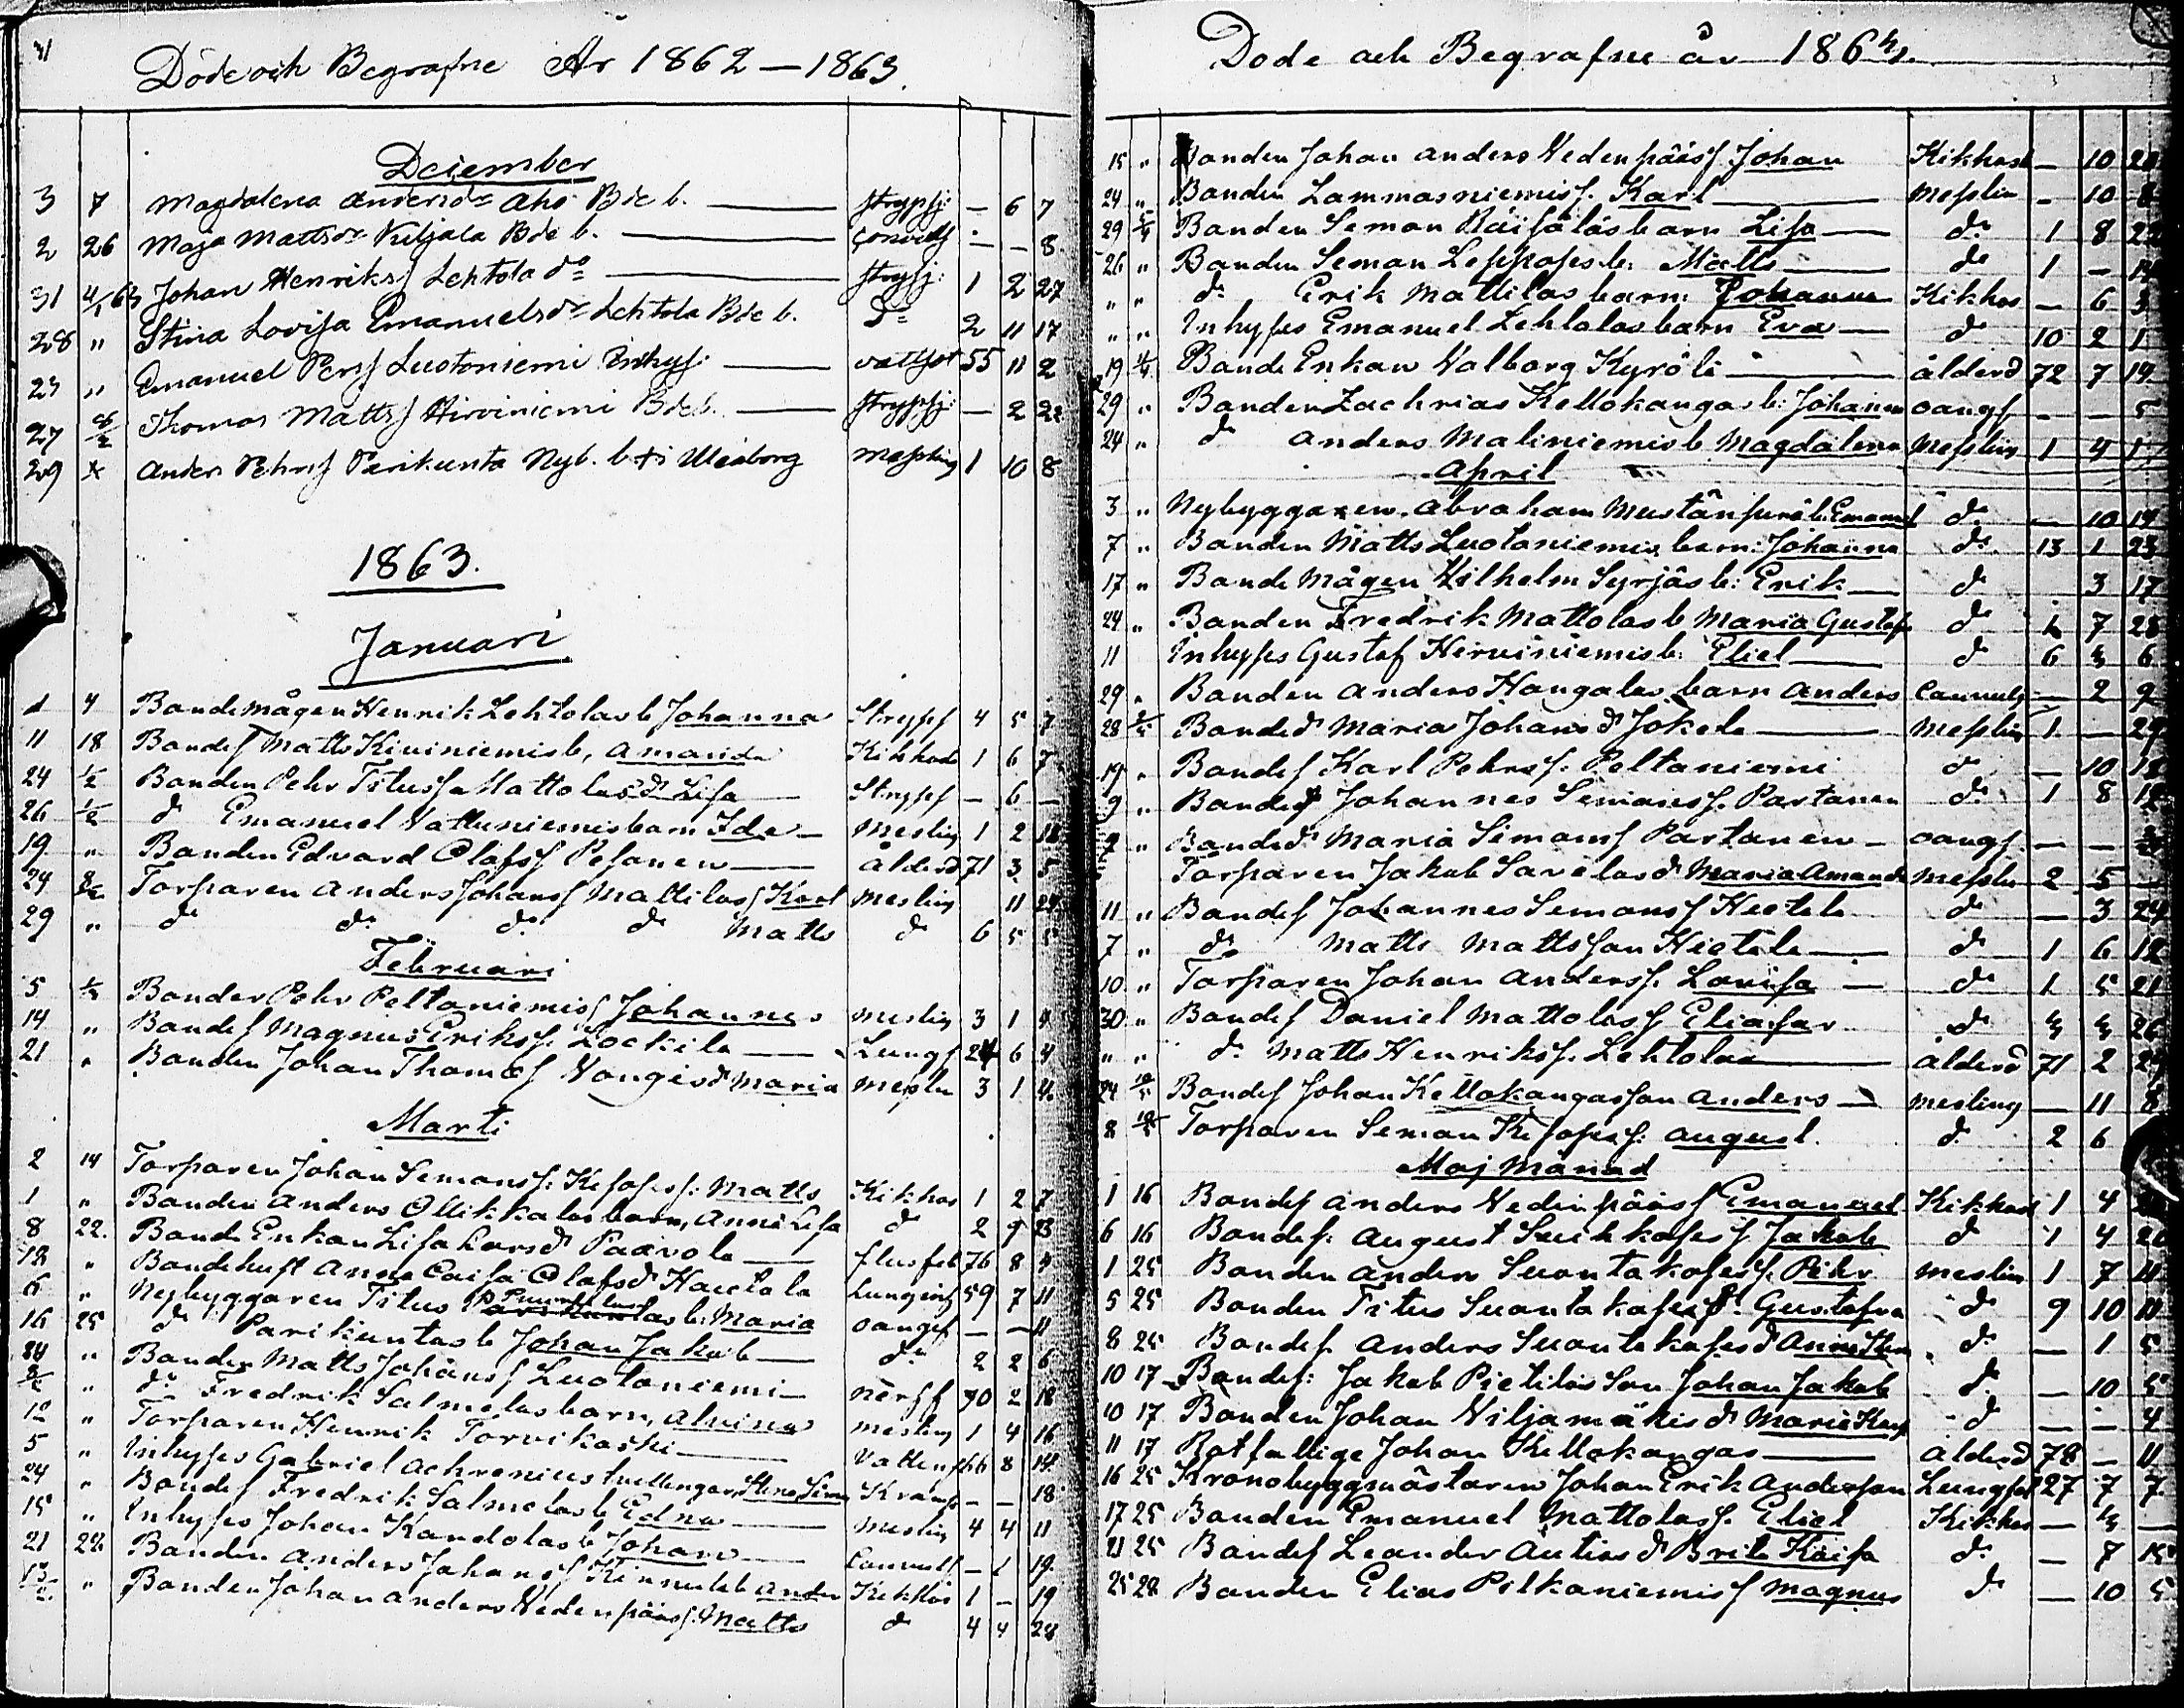 Döde och Begrafne År 1862—1863.
December
3 7 Magdalena Andersdr Aho Bde b. — strypsj: — 6 7
2 26 Maja Mattsdr Kiljala Bde b. — — — 8
31 4/1 63 Johan Henrikss Lehtola do — strypsj: 1 2 27
28 " Stina Lovisa Emanuelsdr Lehtola Bde b. do 2 11 17
23 " Emanuel Pers Luotoniemi Inhys: — vattsot 55 11 2
27 Thomas Matts Hirviniemi Bde b. — strypsj: — 2 22
29 Anders Pehrs Parikunta Nyb. b. i Uleåborg messling 1 10 8
1863.
Januari
1 4 Bondemågen Henrik Lehtolas b Johanna Strypsj 4 5 7
11 18 Bondes Matts Kiviniemis b, Amanda Kikhosta 1 6 7
24 1/2 Bonden Pehr Tituss Mattolas d. Lisa — Strypsj — 6 —
26 1/2 do Emanuel Vattuniemis barn Ida — Mesling 1 2 18
19 " Bonden Edvard Olofss Pesonen — ålderd 71 3 5
24 8/2 Torparen Anders Johans Mattilas s Karl Mesling 11 24
29 " do do do do Matts do 6 5 5
Februari
5 Bonden Pehr Peltoniemis s Johannes Mesling 3 1 4
14 " Bondes Magnus Erikss. Lockila — Lungs 24 6 4
21 " Bonden Johan Thomas Vongis d. Maria Messlin 3 1 4
Marti
2 14 Torparen Johan Semons: Kesos s: Matts Kikhos 1 2 7
1 " Bonden Anders Ollikkalas barn, Anna Lisa do 2 9 23
8 22. Bonde Enkan Lisa Larsd. Paavola — 76 8 4
12 " Bondehust Anna Caisa Olofsd. Haeetala Lunginf 59 7 11
6 " Nybyggaren Titus Puurulas b: Maria oangif — — 11
16 25 do Parikuntas b Johan Jakob — do 2 2 6
24 " Bonden Matts Johans Luotoniemi — nerff 70 2 18
" do Fredrik Salmelas barn, Alvina mesling 1 4 16
12 " Torparen Henrik Torvikoski — Vattens 66 8 14
5 " Inhyses Gabriel Achrenius tvillingar, Stina, Kramp — — 18
24 " Bondes Fredrik Salmelas b Edna — Mesling 4 4 11
15 " Inhyses Johan Kandolas b Johan — Convuls — 1 19
21 22 Bonden Anders Johans Kinnula b Anders Kikhos 1 — 19
" Bonden Johan Anders Vedenpääs s. Matts do 4 4 24
Döde och Begrafne år 1863.
15 " Bonden Johan Anders Vedenpääs s Johan Kikhost — 10 20
24 " Bonden Lammasniemis s. Karl — Messlin — 10 8
29 Bonden Semon Räisäläs barn Lisa — do 1 8 22
26 " Bonden Seman b: Matts — do 1 — 14
" " do Erik Mattilas barn: Johanna Kikhos — 6 3
" " Inhyses Emanuel Lehtolas barn Eva — do 10 2 1
19 Bonde Enkan Valborg Kyrölä — ålderd 72 7 19
29 " Bonden Zachrias Kellokangas b: Johanna oangf — — 5
24 " do Anders Maliniemis b Magdalena Messlin 1 4 17
April
3 " Nybyggaren Abraham b: Emanuel do — 10 14
7 " Bonden Matts Luotoniemis barn: Johanna do 13 1 23
17 " Bonde Mågen Vilhelm Syrjäs b: Erik — do 3 17
24 " Bonden Fredrik Mattolas b Maria Gustafa do 1 7 28
11 Inhyses Gustaf Hirviniemis b: Eliel — do 6 6
29 " Bonden Anders Hangalas barn Anders Convuls — 2 9
28 Bonded. Maria Johansd Jokela — Messlin 1 — 29
19 " Bondes Karl Pehrss. Peltoniemi do — 10 18
9 " Bondes Johannes Semons. Partanen do 1 8 12
2 " Bonded. Maria Simons Partanen — oangf. — —
Torparen Jakob Savelas d. Maria Amanda Messlin 2 5 —
11 " Bondes Johannes Semons Hietala do — 3 24
7 " do Matts Mattsson Hietala — do 1 6 12
10 " Torparen Johan Anderss. Lovisa — do 1 5 21
30 " Bondes Daniel Mattolas s Eliasar do 26
" " do Matts Henrikss. Lehtola — ålderd 71 2 29
24 Bondes Johan Kellokangas son Anders — mesling — 11 8
8 Torparen Seman s: August. do 2 6
Maj Månad
1 16 Bondes Anders Vedenpääs s Emanuel Kikhost 1 4
6 16 Bondes: August s Jakob do 1 4 20
1 25 Bonden Anders Suontakoses s. Pehr Mesling 1 7 11
5 25 Bonden Titus Suontakoses d: Gustafva do 9 10 11
8 25 Bondes Anders Suontakoses d Anna do — 1 5
10 17 Bondes: Jakob Pietiläs Son Johan Jakob do — 10 5
10 17 Bonden Johan Viljamäkis d. Maria do — — 4
11 17 Rotfattige Johan Kellokangas — ålderd 78 — 11
16 25 Kronobyggmästaren Johan Erik Andersson Lungsot 27 7 7
17 25 Bonden Emanuel Mattolas s. Eliel Kikhos —
21 25 Bondes Leander Autios d. Brita Kaisa do — 7 15
25 28 Bonden Elias Pilkaniemis s Magnus do — 10 5